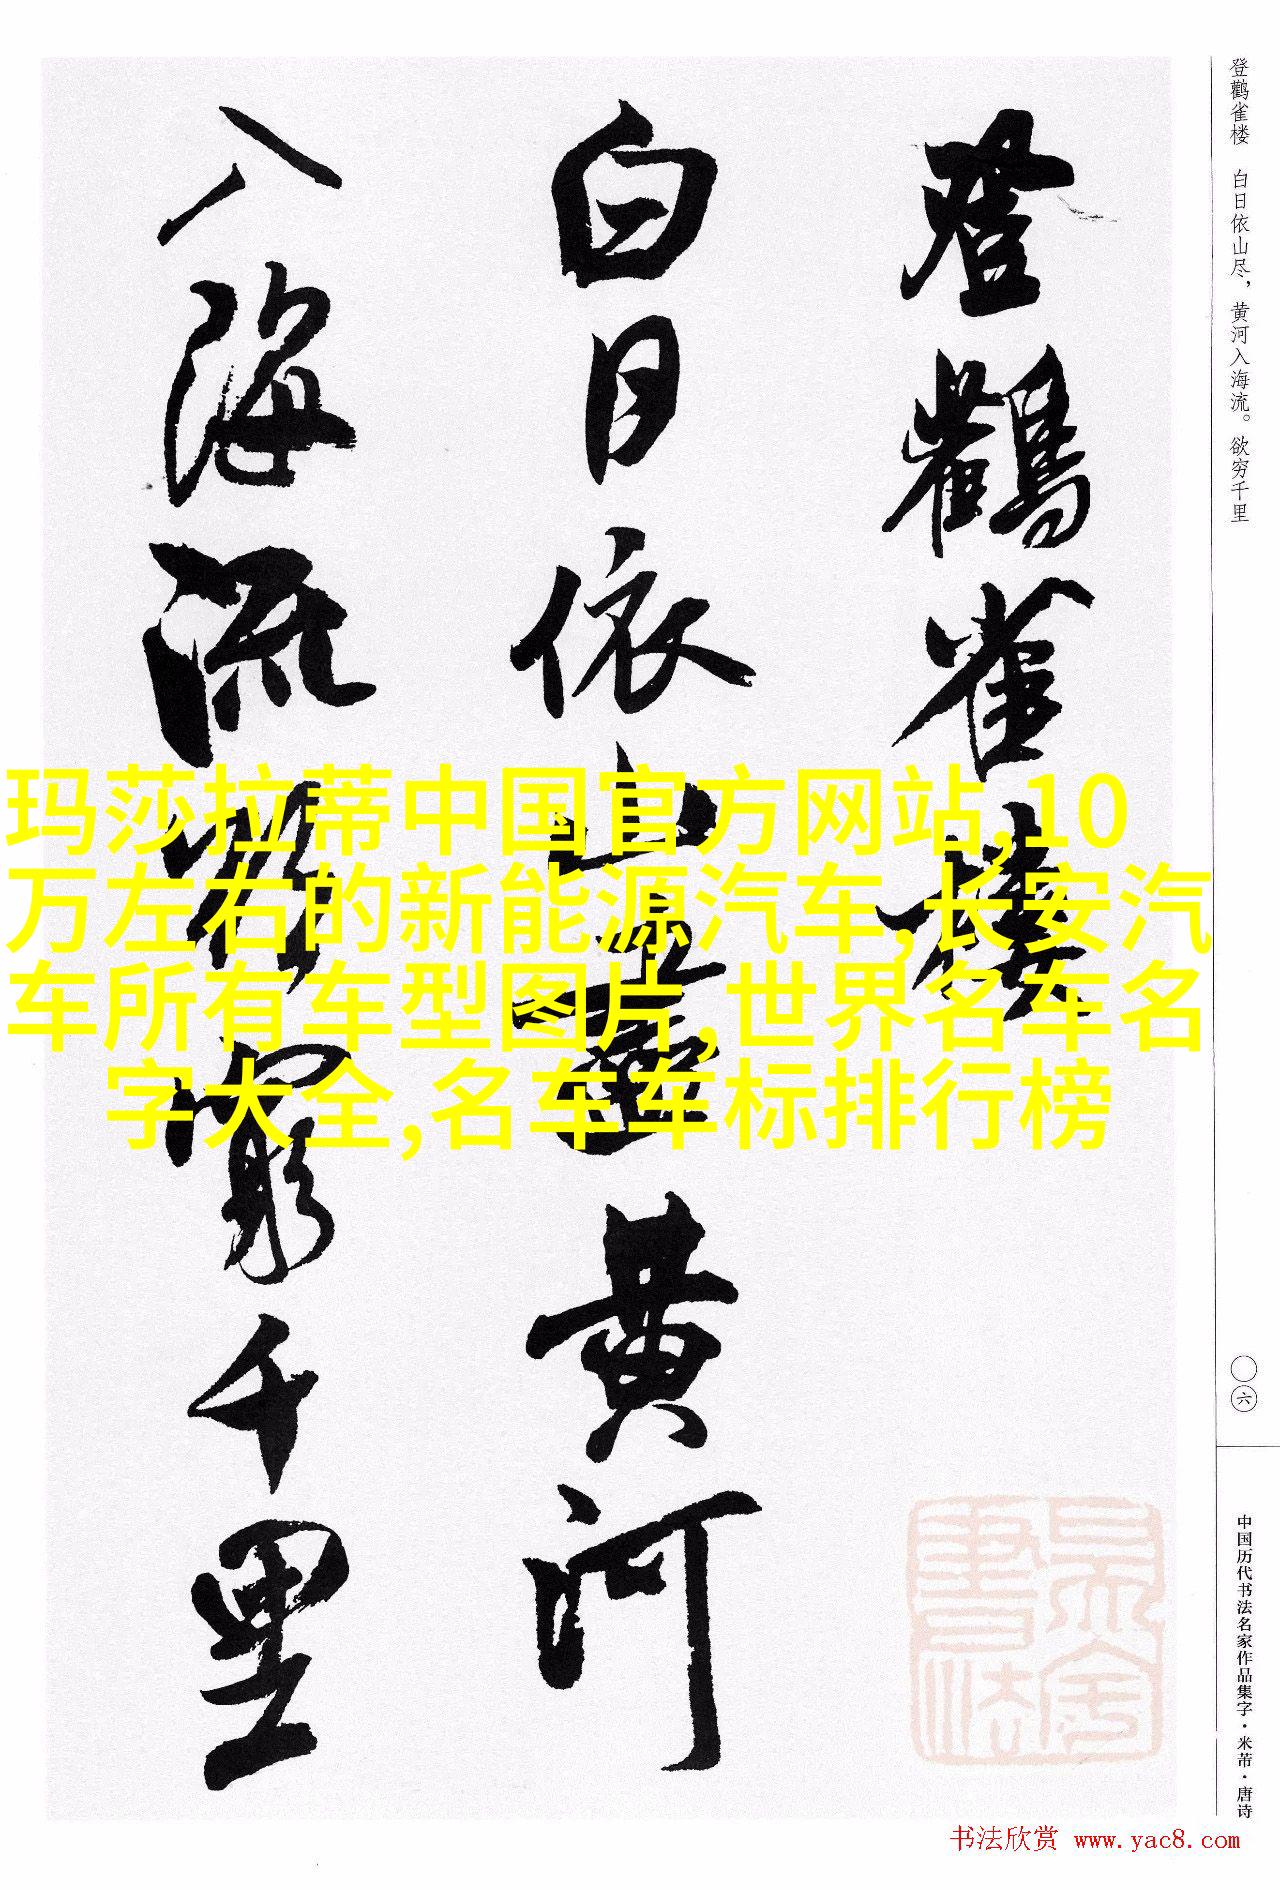 登鹳雀楼 白日依山尽，黄河入海流。欲穷千里
登鸛雀樓
白日依山盡黄河
入海流欲窮千里
玛莎拉蒂中国官方网站,10
万左右的新能源汽车,长安汽
车所有车型图片,世界名车名
字大全,名车车标排行榜
〇六
中国历代书法名家作品集字·米芾·唐诗
书法欣赏 www.yac8.com